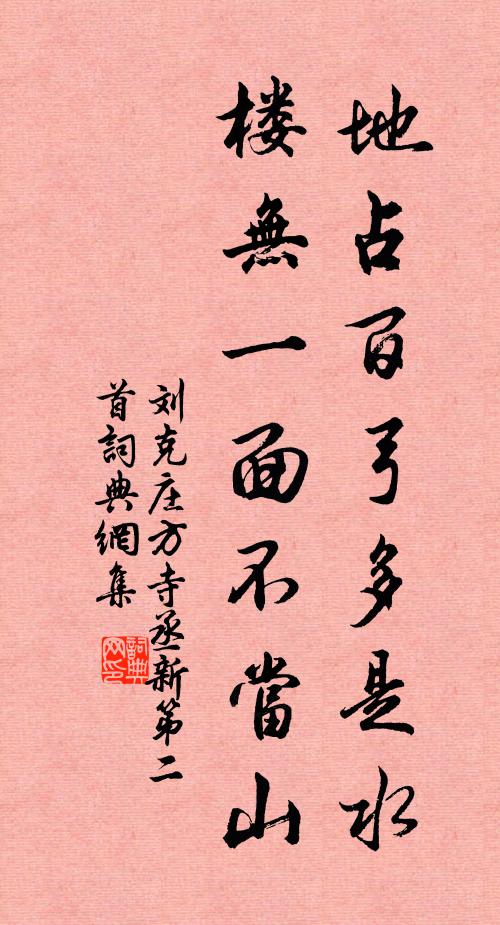 地占百弓多是水
楼無一面不當山
刘克庄方寺丞新第二
首詞典網集
詞典
网印